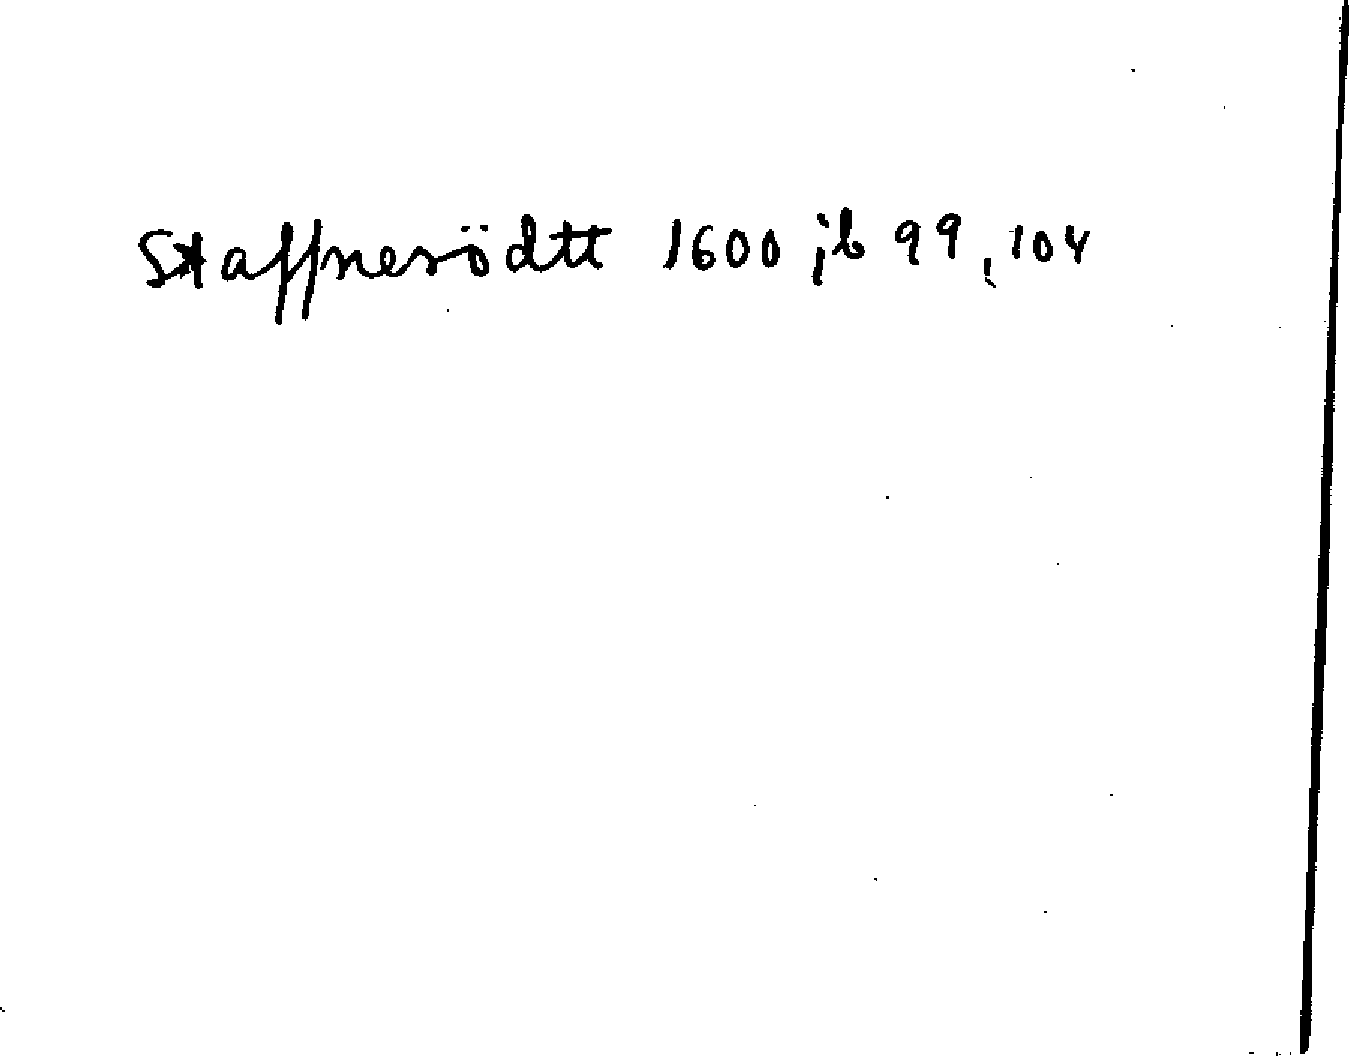 Staffnerödtt 1600 jb 99, 104